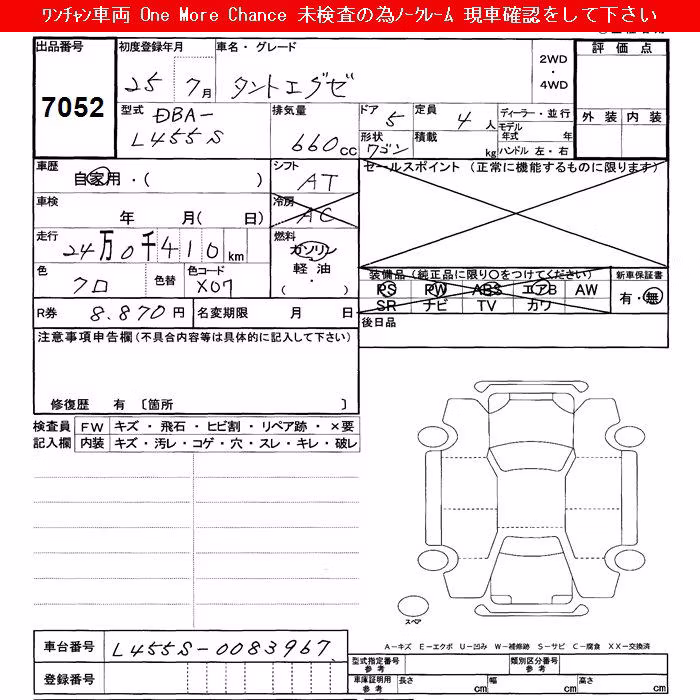 ﾜﾝﾁｬﾝ車両 One More Chance 未検査の為ﾉｰｸﾚｰﾑ 現車確認をして下さい
出品番号 7052
初度登録年月 25 7月
車名・グレード タントエグゼ
2WD・4WD
評価点
外装 内装
型式 DBA-L455S
排気量 660cc
ドア 5
形状 ワゴン
定員 4人
積載 kg
ディーラー・並行
モデル年式 年
ハンドル 左・右
車歴 自家用・( )
シフト AT
セールスポイント (正常に機能するものに限ります)
車検 年 月( 日)
冷房 AC
走行 24万0千410km
燃料 ガソリン 軽油 ( ・ )
色 クロ
色替
色コード X07
装備品(純正品に限り○をつけてください)
PS PW ABS エアB AW
SR ナビ TV カワ
新車保証書 有・無
R券 8.870円
名変期限 月 日
後日品
注意事項申告欄(不具合内容等は具体的に記入して下さい)
修復歴 有 〔箇所 〕
検査員記入欄
FW キズ・飛石・ヒビ割・リペア跡・×要
内装 キズ・汚レ・コゲ・穴・スレ・キレ・破レ
スペア
車台番号 L455S-0083967
登録番号
A-キズ E-エクボ U-凹み W-補修跡 S-サビ C-腐食 XX-交換済
型式指定番号 参考
類別区分番号 参考
車庫証明用 参考 長さ cm 幅 cm 高さ cm